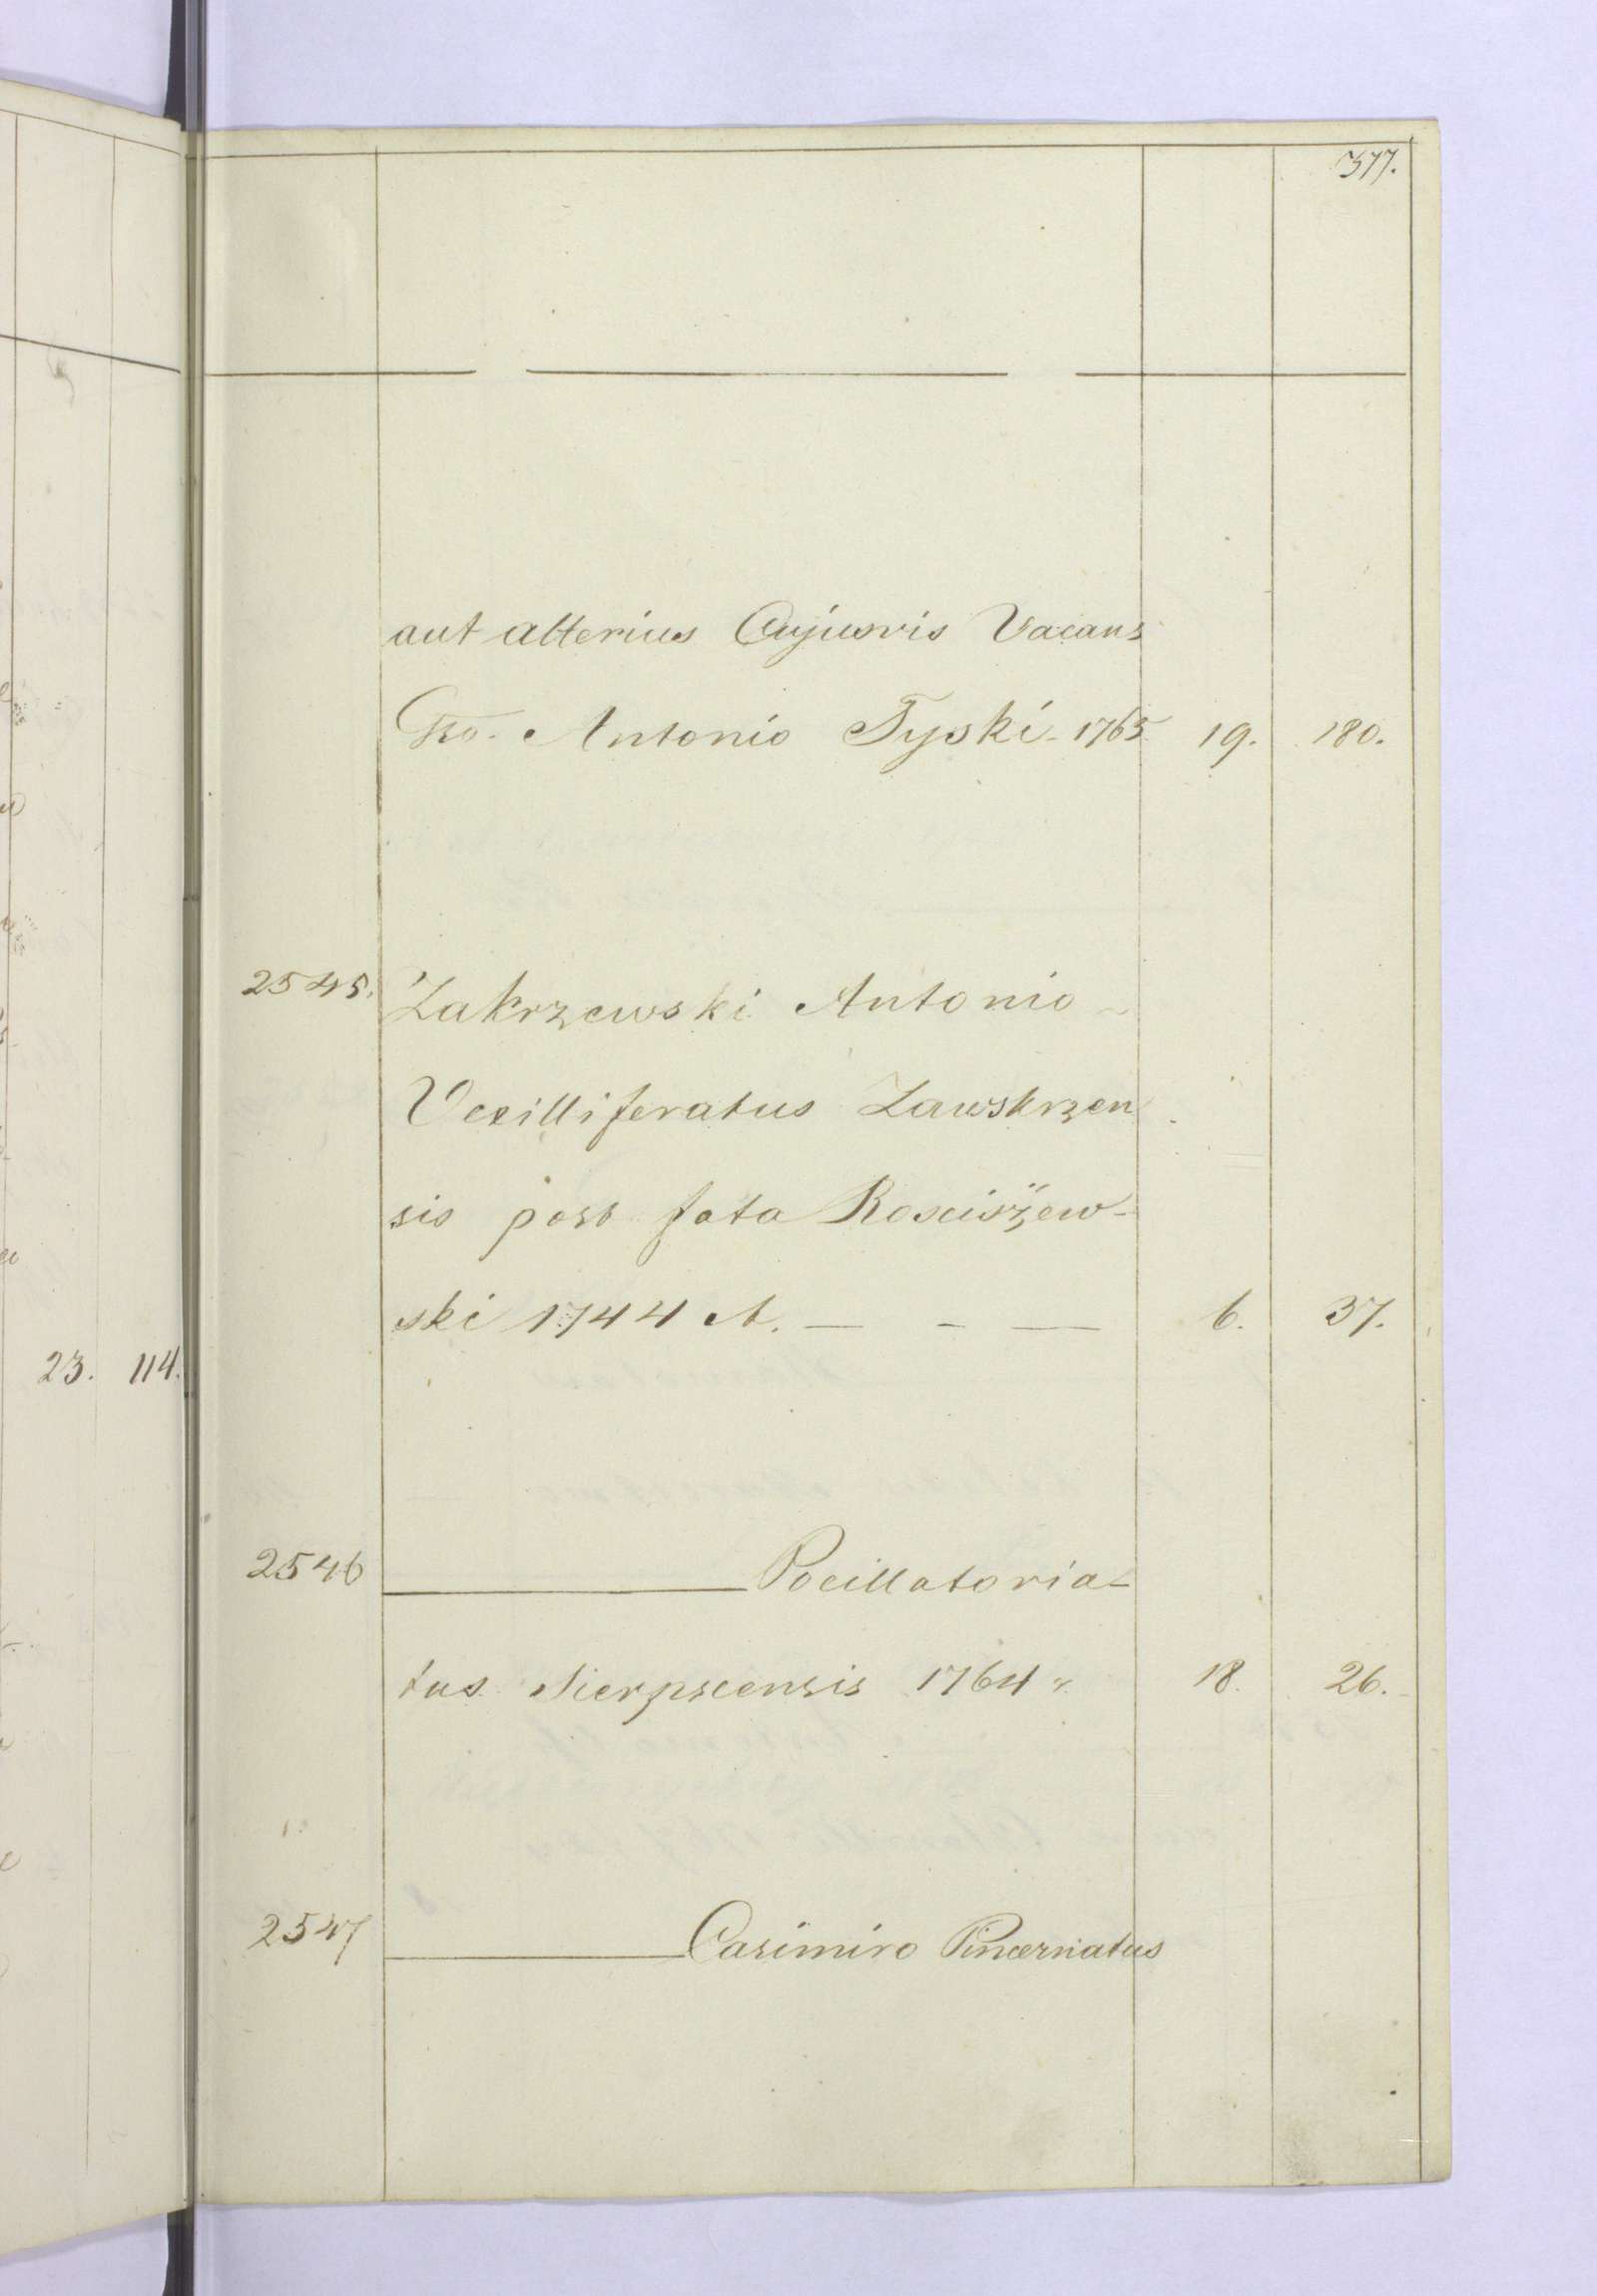 377.
aut alterius Cujusvis Vacans
Gso. Antonio Tyski - 1765 19. 180.
2545. Zakrzewski Antonio ~
Vexilliferatus Zawskrzen
sis post fata Rosciszew-
ski 1744 A. — - — 6. 37.
23. 114.
2546 ——— Pocillatoria-
tus Sierpscensis 1764 18. 26.
2547 ——— Casimiro Pincernatus